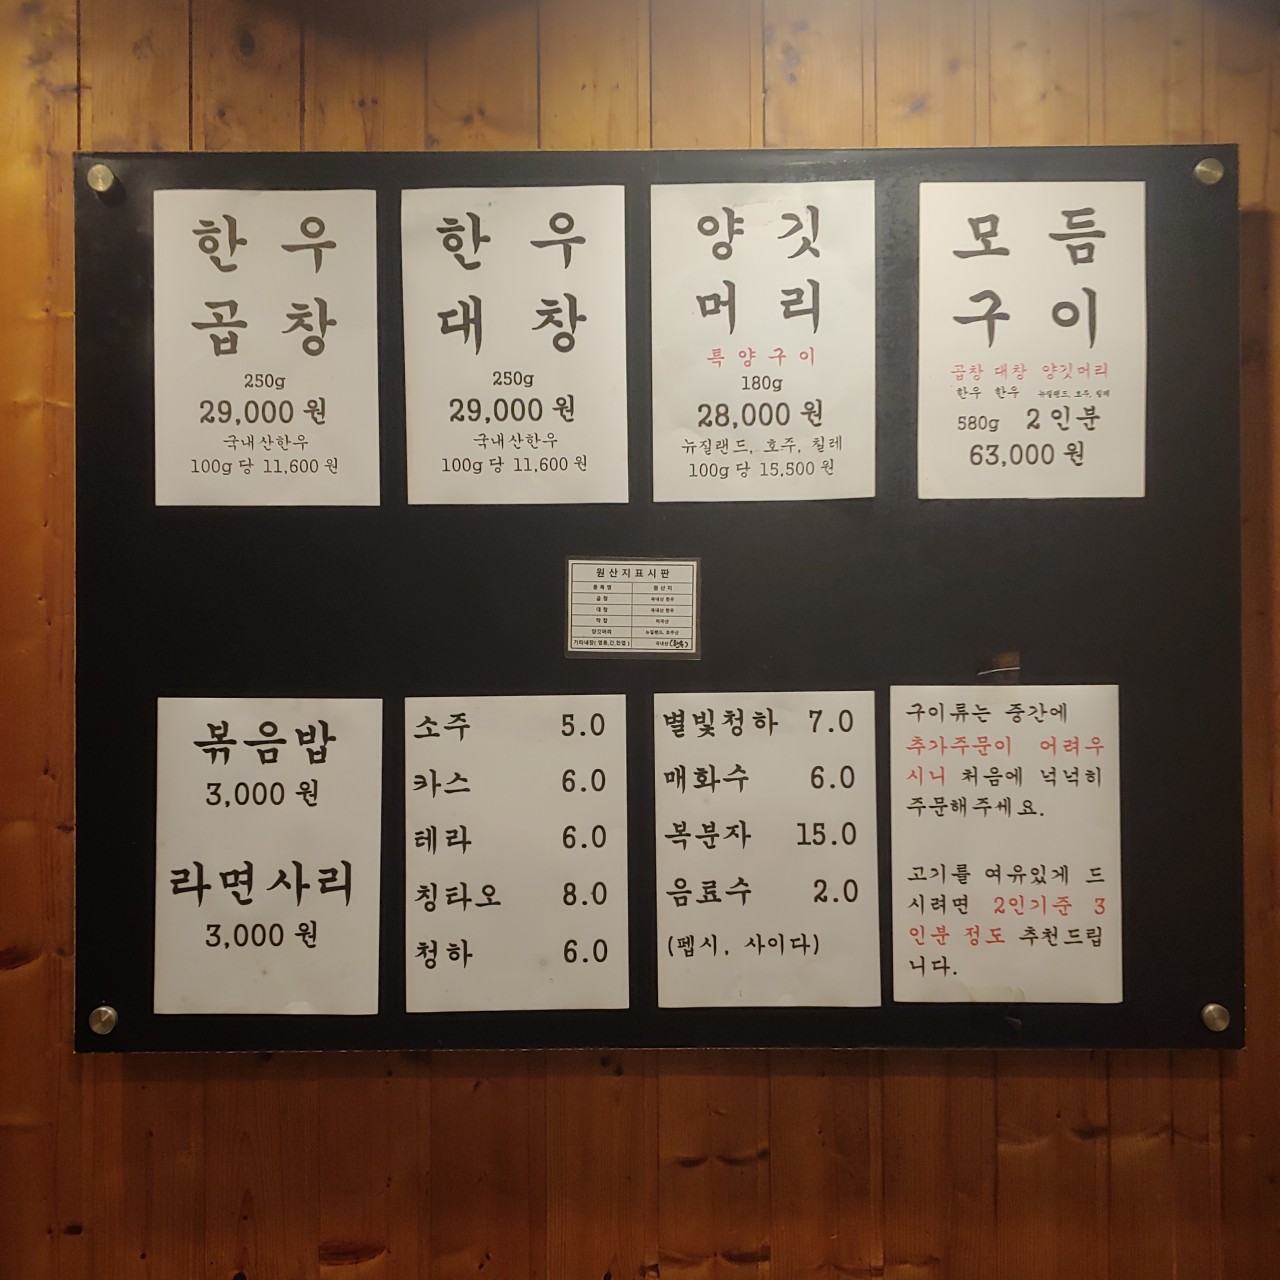 한 우
곱 창
250g
29,000 원
국내산한우
100g 당 11,600 원
한 우
대 창
250g
29,000 원
국내산한우
100g 당 11,600 원
양 깃
머 리
특 양 구 이
180g
28,000 원
뉴질랜드, 호주, 칠레
100g 당 15,500 원
모 듬
구 이
곱창 대창 양깃머리
한우 한우 뉴질랜드, 호주, 칠레
580g 2 인분
63,000 원
원산지표시판
품목명 원산지
곱창 국내산 한우
대창 국내산 한우
막창 미국산
양깃머리 뉴질랜드, 호주산
기타내장( 염통,간,천엽 ) 국내산(한우)
볶음밥
3,000 원
라면사리
3,000 원
소주 5.0
카스 6.0
테라 6.0
칭타오 8.0
청하 6.0
별빛청하 7.0
매화수 6.0
복분자 15.0
음료수 2.0
(펩시, 사이다)
구이류는 중간에
추가주문이 어려우
시니 처음에 넉넉히
주문해주세요.
고기를 여유있게 드
시려면 2인기준 3
인분 정도 추천드립
니다.